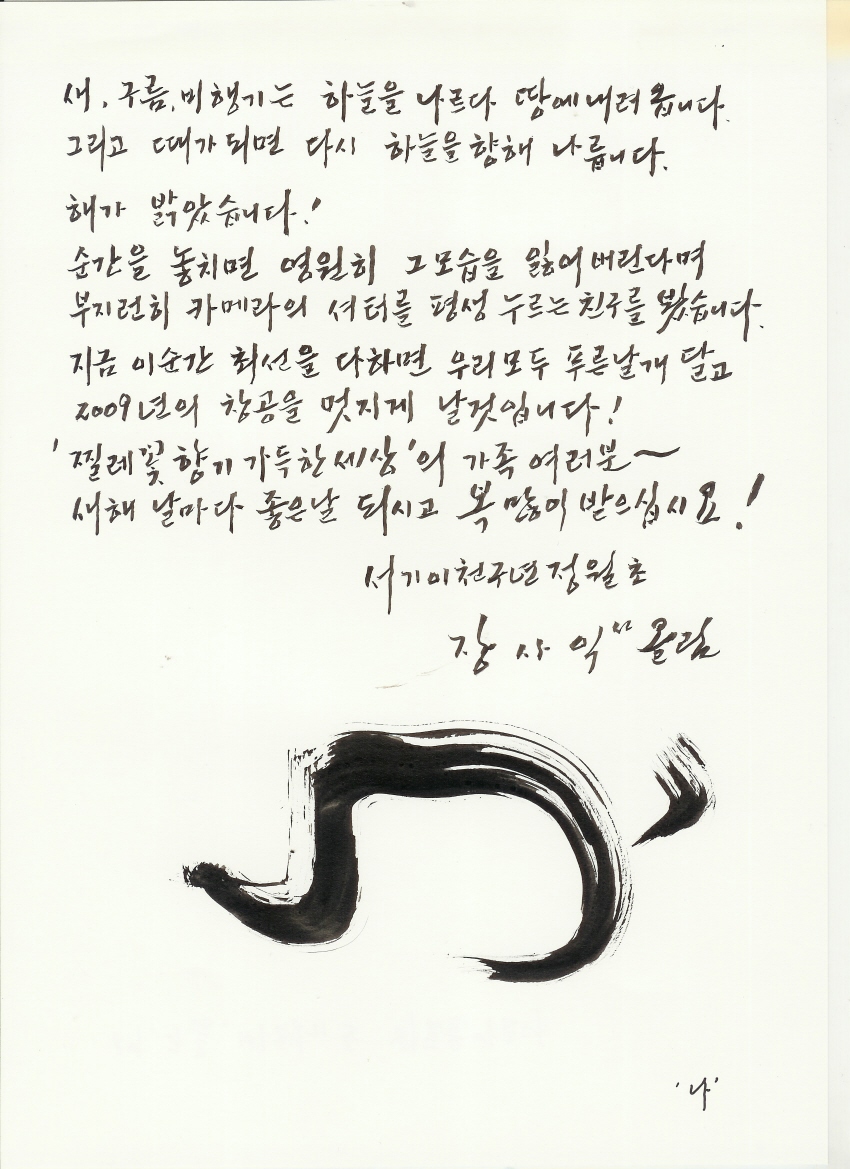 새, 구름, 비행기는 하늘을 나르다 땅에 내려 옵니다.
그리고 때가 되면 다시 하늘을 향해 나릅니다.
해가 밝았습니다!
순간을 놓치면 영원히 그 모습을 잃어버린다며
부지런히 카메라의 셔터를 평생 누르는 친구를 봤습니다.
지금 이순간 최선을 다하면 우리 모두 푸른날개 달고
2009년의 창공을 멋지게 날것입니다!
'찔레꽃 향기 가득한 세상'의 가족 여러분~
새해 날마다 좋은날 되시고 복 많이 받으십시요!
서기이천구년 정월 초
장사익 올림
'나'